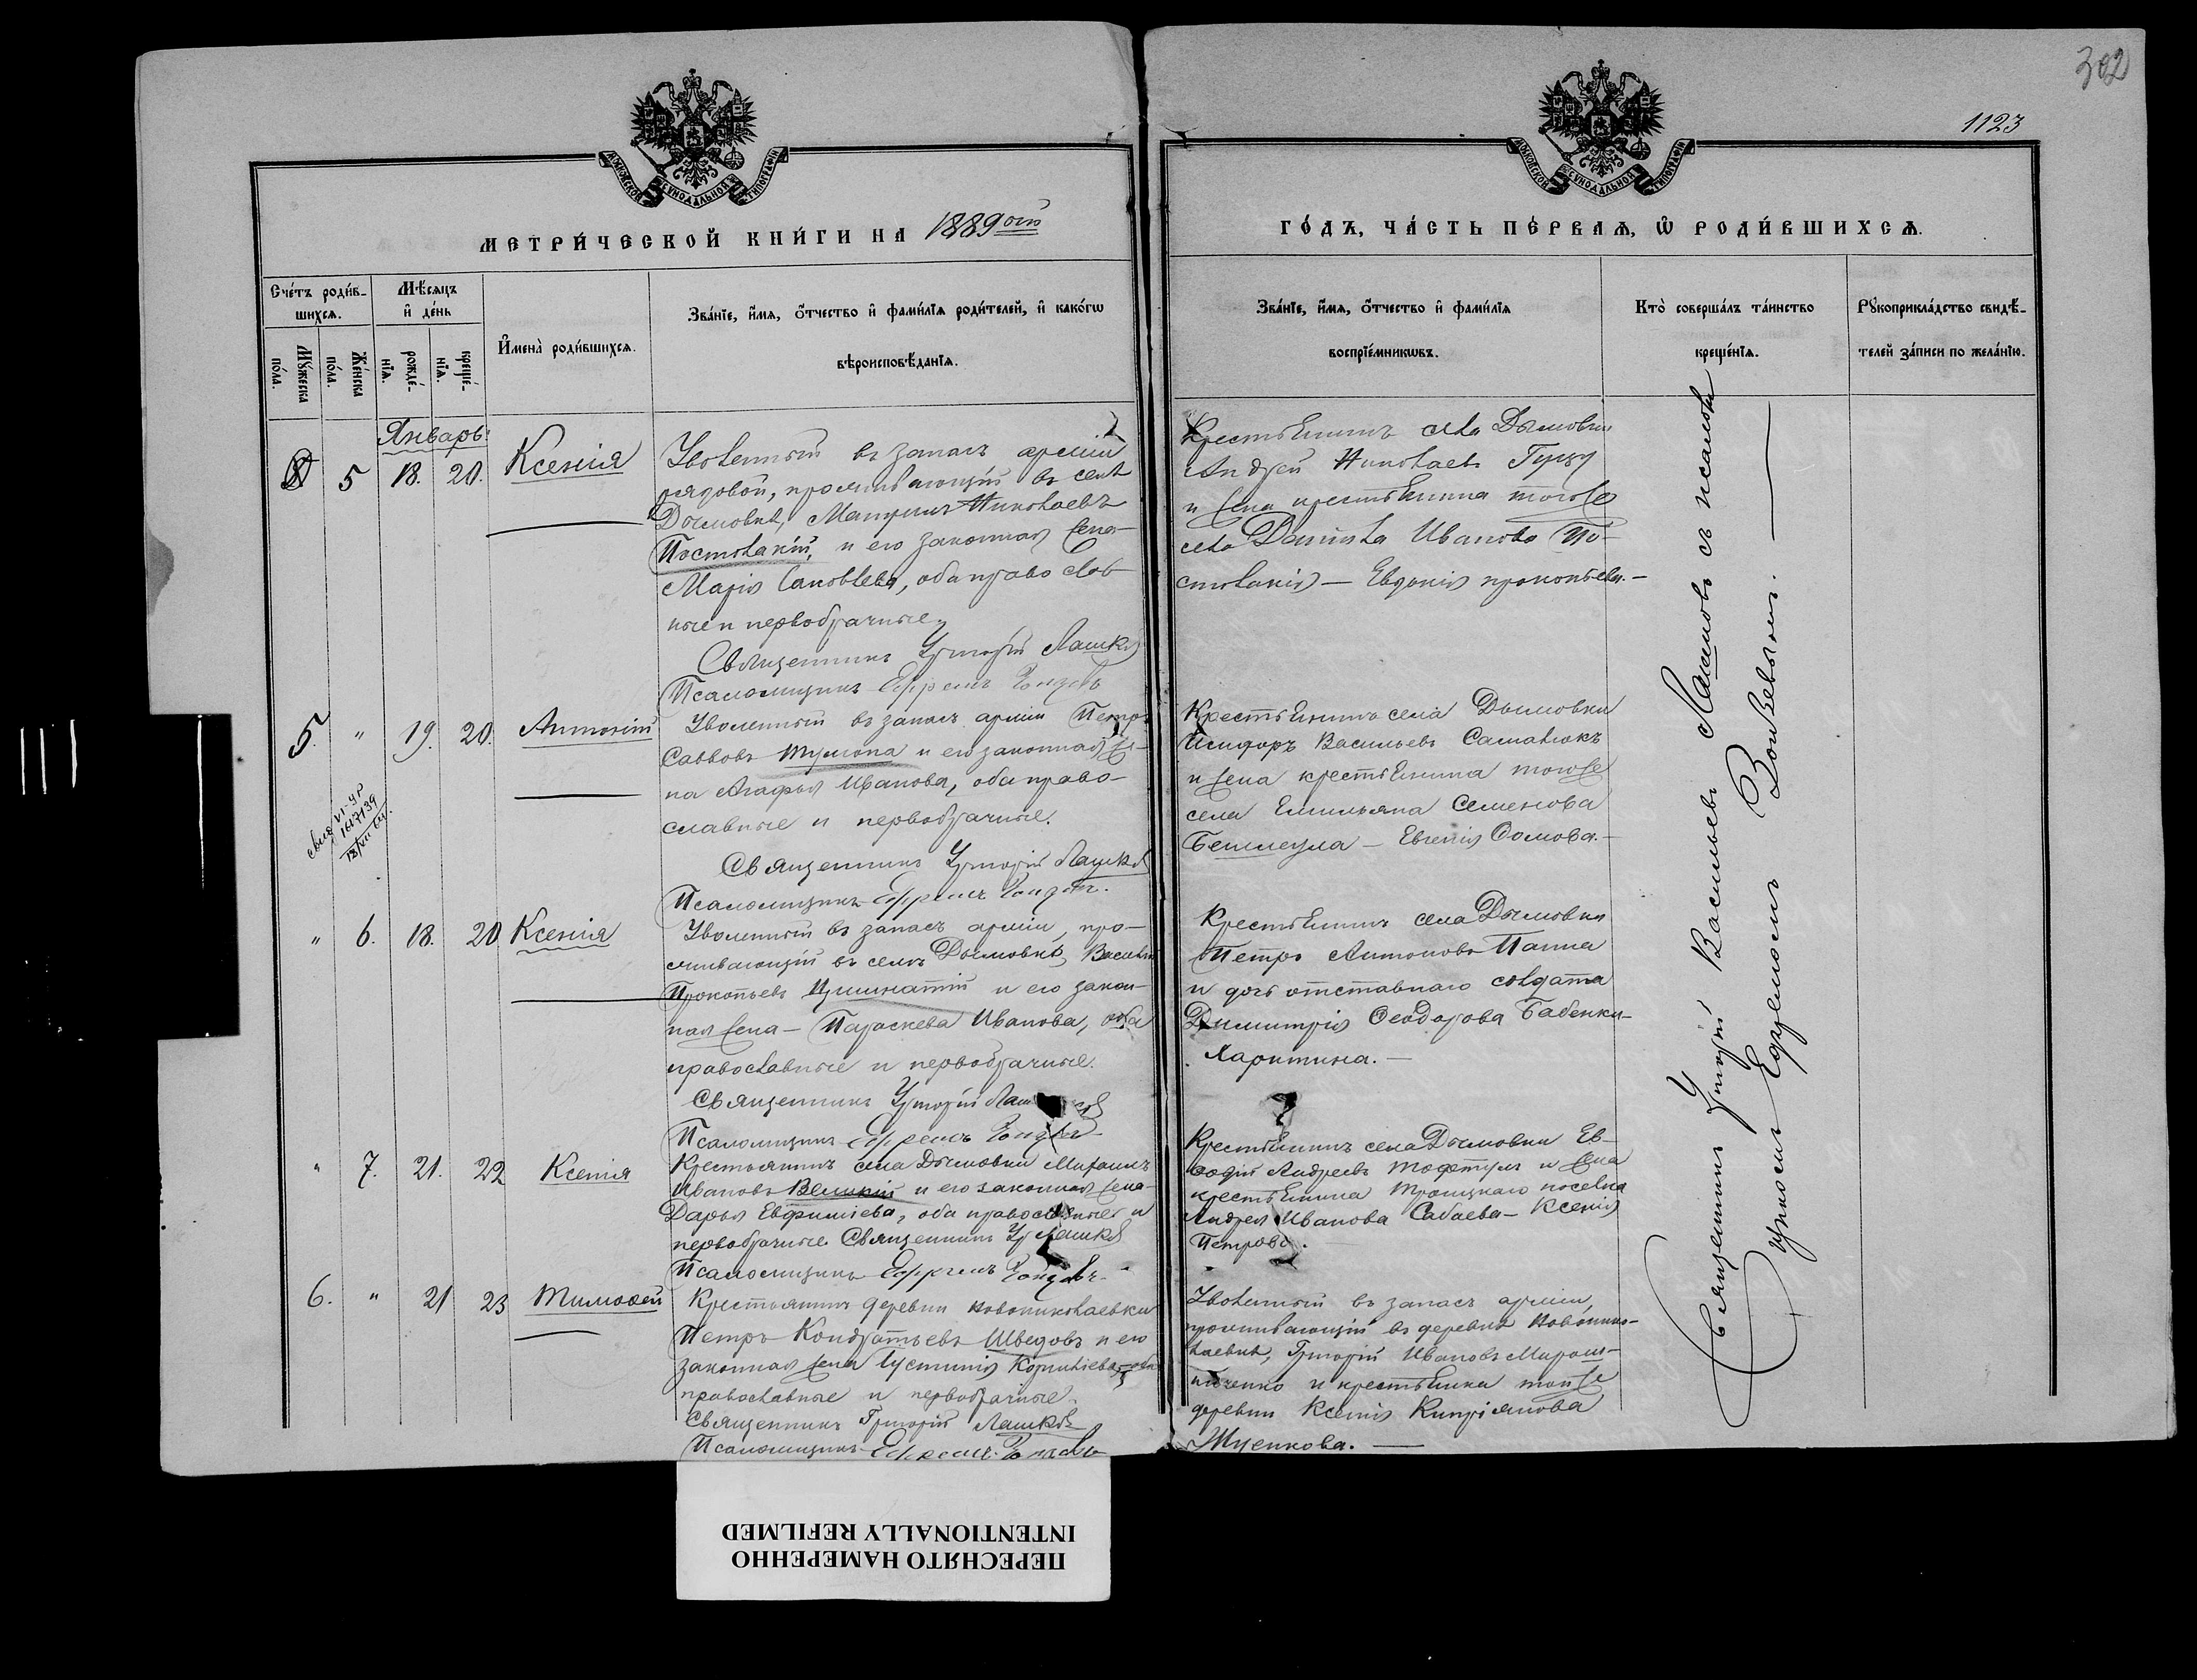 302
1123
МОСКОВСКОЙ СѴНОДАЛЬНОЙ ТИПОГРАФІИ
МОСКОВСКОЙ СѴНОДАЛЬНОЙ ТИПОГРАФІИ
МЕТРИ́ЧЕСКОЙ КНИ́ГИ НА 1889ый
ГО́ДЪ, ЧА́СТЬ ПЕ́РВАѦ, Ѿ РОДИ́ВШИХСѦ.
Сче́тъ роди́в-
шихсѧ.
Мѣ́сѧцъ
и҆ де́нь
Мꙋ́жеска по́ла.
Же́нска по́ла.
рожде́-
нїѧ.
креще́-
нїѧ.
И҆мена̀ роди́вшихсѧ.
Зва́нїе, и҆́мѧ, ѻ҆́тчество и҆ фами́лїѧ роди́телей, и҆ како́гѡ
вѣроисповѣ́данїѧ.
Зва́нїе, и҆́мѧ, ѻ҆́тчество и҆ фами́лїѧ
воспрїе́мникѡвъ.
Кто̀ соверша́лъ та́инство
креще́нїѧ.
Рꙋкоприкла́дство свидѣ́-
телей за́писи по жела́нїю.
Январь
5 18. 20. Ксенія
Уволенный въ запасъ арміи
рядовой, проживающій въ селѣ
Дымовкѣ, Николаевъ
Постолакій, и его законная жена
Марія Іаковлева, оба православ
ные и первобрачные
Священникъ Григорій Лашковъ
Псаломщикъ Ефремъ
Крестьянинъ села Дымовки
Андрей Николаевъ
и жена крестьянина тогоже
села Даниила Иванова По-
столакія — Евдокія Прокопьева.—
5. " 19. 20. Антоній
Уволенный въ запасъ арміи Петръ
Савовъ и его законная же-
на Агафья Иванова, оба право-
славные и первобрачные.
Священникъ Григорій Лашковъ
Псаломщикъ Ефремъ
Крестьянинъ села Дымовки
Исидоръ Васильевъ Саматюкъ
и жена крестьянина тогоже
села Емильяна Семенова
Бешлеула — Евгенія Ѳомова.—
" 6. 18. 20 Ксенія
Уволенный въ запасъ арміи, про-
живающій въ селѣ Дымовкѣ, Василій
Прокопьевъ и его закон-
ная жена — Параскева Иванова, оба
православные и первобрачные.
Священникъ Григорій
Псаломщикъ Ефремъ
Крестьянинъ села Дымовки
Петръ Антоновъ Паша
и дочь отставнаго солдата
Димитрія Ѳеодорова Бабенки
Харитина.—
" 7. 21. 22 Ксенія
Крестьянинъ села Дымовки Михаилъ
Ивановъ Великій и его законная жена
Дарья Евфиміева, оба православные и
первобрачные Священникъ Гр Лашковъ
Псаломщикъ Ефремъ
Крестьянинъ села Дымовки Ев-
Андреевъ и жена
крестьянина Троицкаго поселка
Андрея Иванова Сабаева — Ксенія
Петрова.
6. " 21 23 Тимоѳей
Крестьянинъ деревни Новониколаевки
Петръ Кондратьевъ Шведовъ и его
законная жена Іустинія Корниліева, оба
православные и первобрачные.
Священникъ Григорій Лашковъ
Псаломщикъ Ефремъ
Уволенный въ запасъ арміи,
проживающій въ деревнѣ Новонико-
лаевкѣ, Григорій Ивановъ Мирош-
ниченко и крестьянка тойже
деревни Ксенія Кипріянова
Жученкова.—
Священникъ Григорій Васильевъ Лашковъ съ псаломщикомъ Ефремомъ
ПЕРЕСНЯТО НАМЕРЕННО
INTENTIONALLY REFILMED